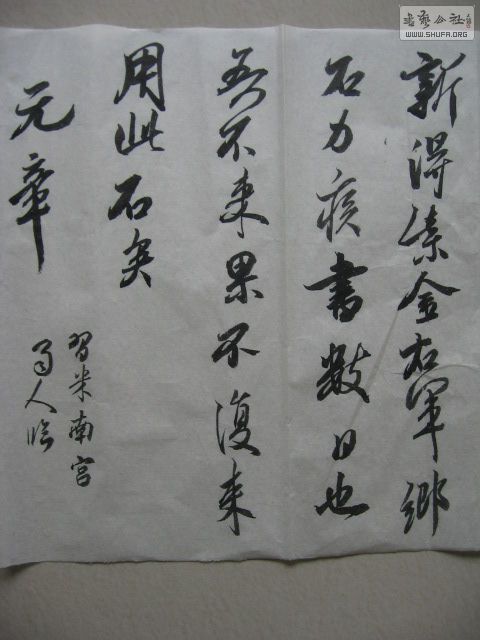 書藝公社
WWW.SHUFA.ORG
新得紫金右軍鄉
石力疾書數日也
吾不來果不復來
用此石矣
元章
習米南宮
人臨